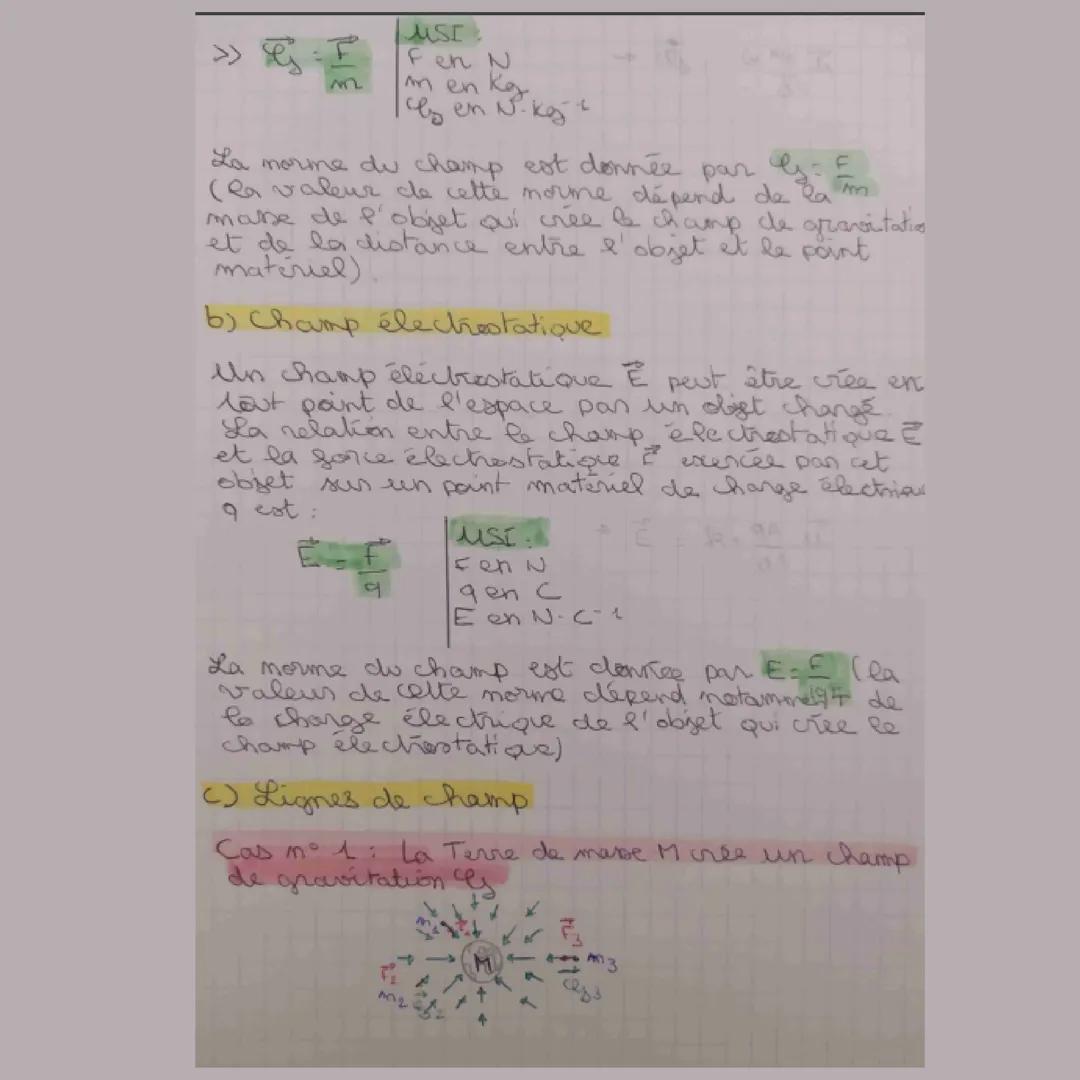 >> 𝒢 = F/m
USI :
F en N
m en Kg
𝒢 en N.kg⁻¹
La norme du champ est donnée par 𝒢 = F/m
(la valeur de cette norme dépend de la
masse de l'objet qui crée le champ de gravitation
et de la distance entre l'objet et le point
matériel)
b) Champ électrostatique
Un champ éléctrostatique E peut être crée en
tout point de l'espace par un objet chargé.
La relation entre le champ électrostatique E
et la force électrostatique F exercée par cet
objet sur un point matériel de charge électrique
q est :
E = F/q
USI :
F en N
q en C
E en N.C⁻¹
La norme du champ est donnée par E = F/|q| (la
valeur de cette norme dépend notamment de
la charge électrique de l'objet qui crée le
champ électrostatique)
c) Lignes de champ
Cas n° 1 : La Terre de masse M crée un champ
de gravitation 𝒢
m₁ F₁
F₃
M
m₃
F₂
𝒢₃
m₂
𝒢₂